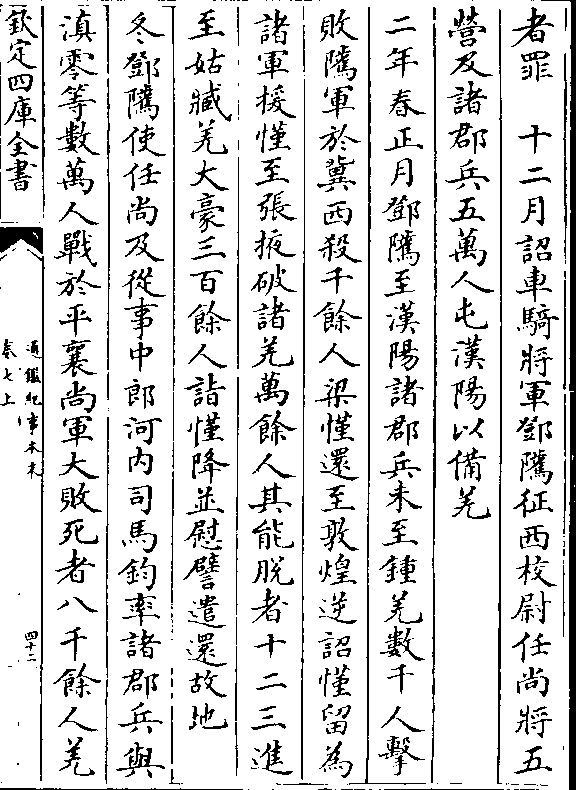 者罪　十二月詔車騎將軍鄧隲征西校尉任尚將五
營及諸郡兵五萬人屯漢陽以備羌
二年春正月鄧隲至漢陽諸郡兵未至鍾羌數千人擊
敗隲軍於冀西殺千餘人梁慬還至敦煌逆詔慬留為
諸軍援慬至張掖破諸羌萬餘人其能脱者十二三進
至姑臧羌大豪三百餘人詣慬降並慰譬遣還故地
冬鄧隲使任尚及從事中郎河內司馬鈞率諸郡兵與
滇零等數萬人戰於平襄尚軍大敗死者八千餘人羌
欽定四庫全書
通鑑紀事本末
卷七上
四十二